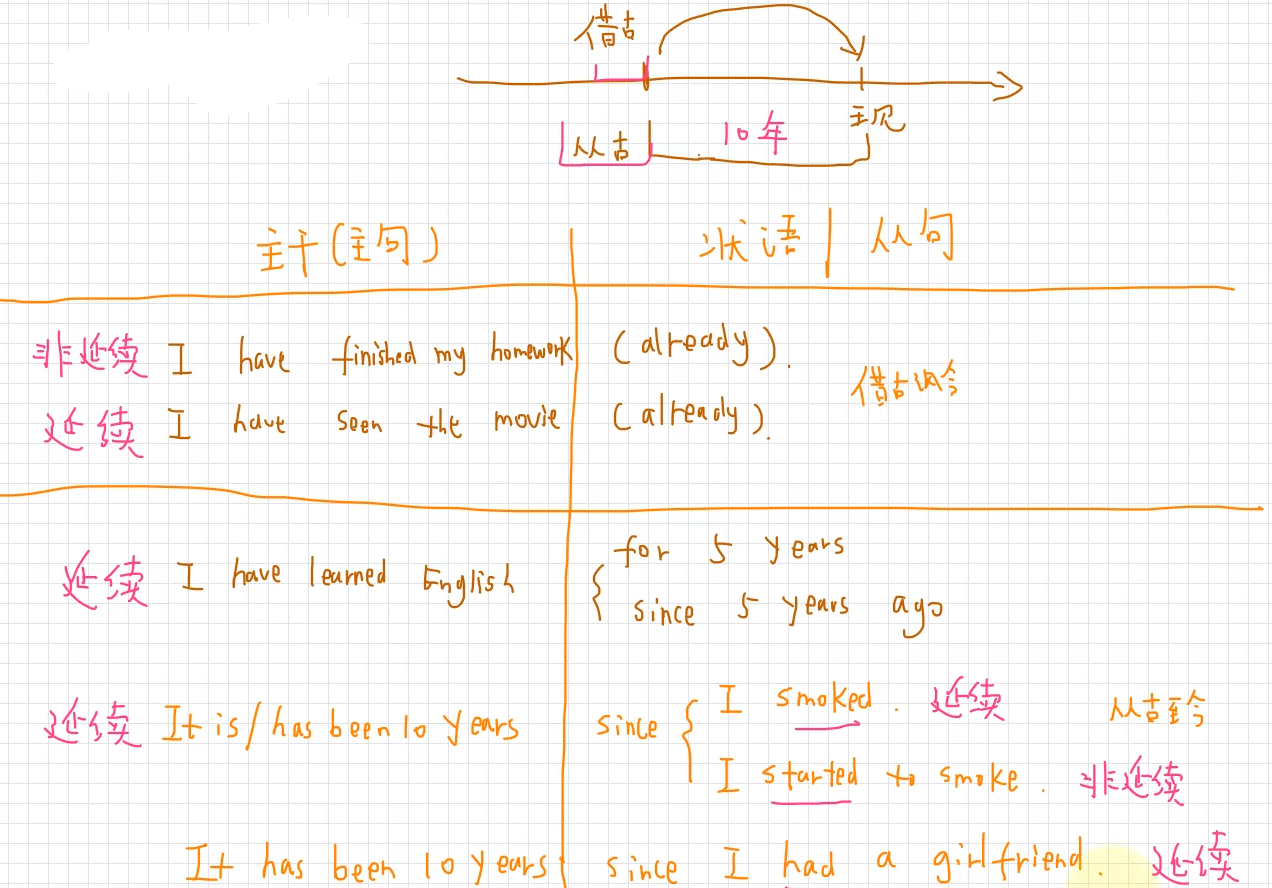 借古
从古 10年 主现
主干(主句) 状语 | 从句
非延续 I have finished my homework (already).
借古说今
延续 I have seen the movie (already).
延续 I have learned English { for 5 years
since 5 years ago
延续 It is/has been 10 years since { I smoked. 延续 从古至今
I started to smoke. 非延续
It has been 10 years since I had a girlfriend. 延续